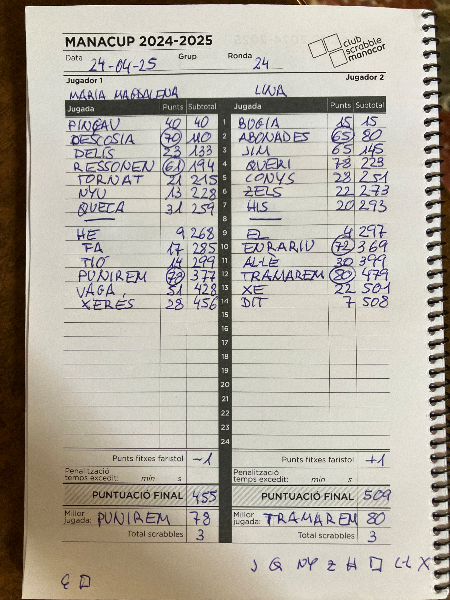 MANACUP 2024-2025
club scrabble manacor
Data 24-04-25 Grup Ronda 24
Jugador 1 Jugador 2
MARIA MAGDALENA LUNA
Jugada Punts Subtotal Jugada Punts Subtotal
PINÇAV 40 40 1 BUGIA 15 15
DESCOSIA 70 110 2 ABONADES 65 80
DELIS 23 133 3 JIM 65 145
RESSONEN 61 194 4 QUERI 78 223
TORNAT 21 215 5 CONYS 28 251
NYU 13 228 6 ZELS 22 273
QUECA 31 259 7 HIS 20 293
8
HE 9 268 9 EL 4 297
FA 17 285 10 ENRARIU 72 369
TIO 14 299 11 AL·LE 30 399
PUNIREM 78 377 12 TRAMAREM 80 479
VAGA 51 428 13 XE 22 501
XERÉS 28 456 14 DIT 7 508
15
16
17
18
19
20
21
22
23
24
Punts fitxes faristol -1 Punts fitxes faristol +1
Penalització temps excedit: min s Penalització temps excedit: min s
PUNTUACIÓ FINAL 455 PUNTUACIÓ FINAL 509
Millor jugada: PUNIREM 78 Millor jugada: TRAMAREM 80
Total scrabbles 3 Total scrabbles 3
J Q NY Z H □ L·L X
Ç □